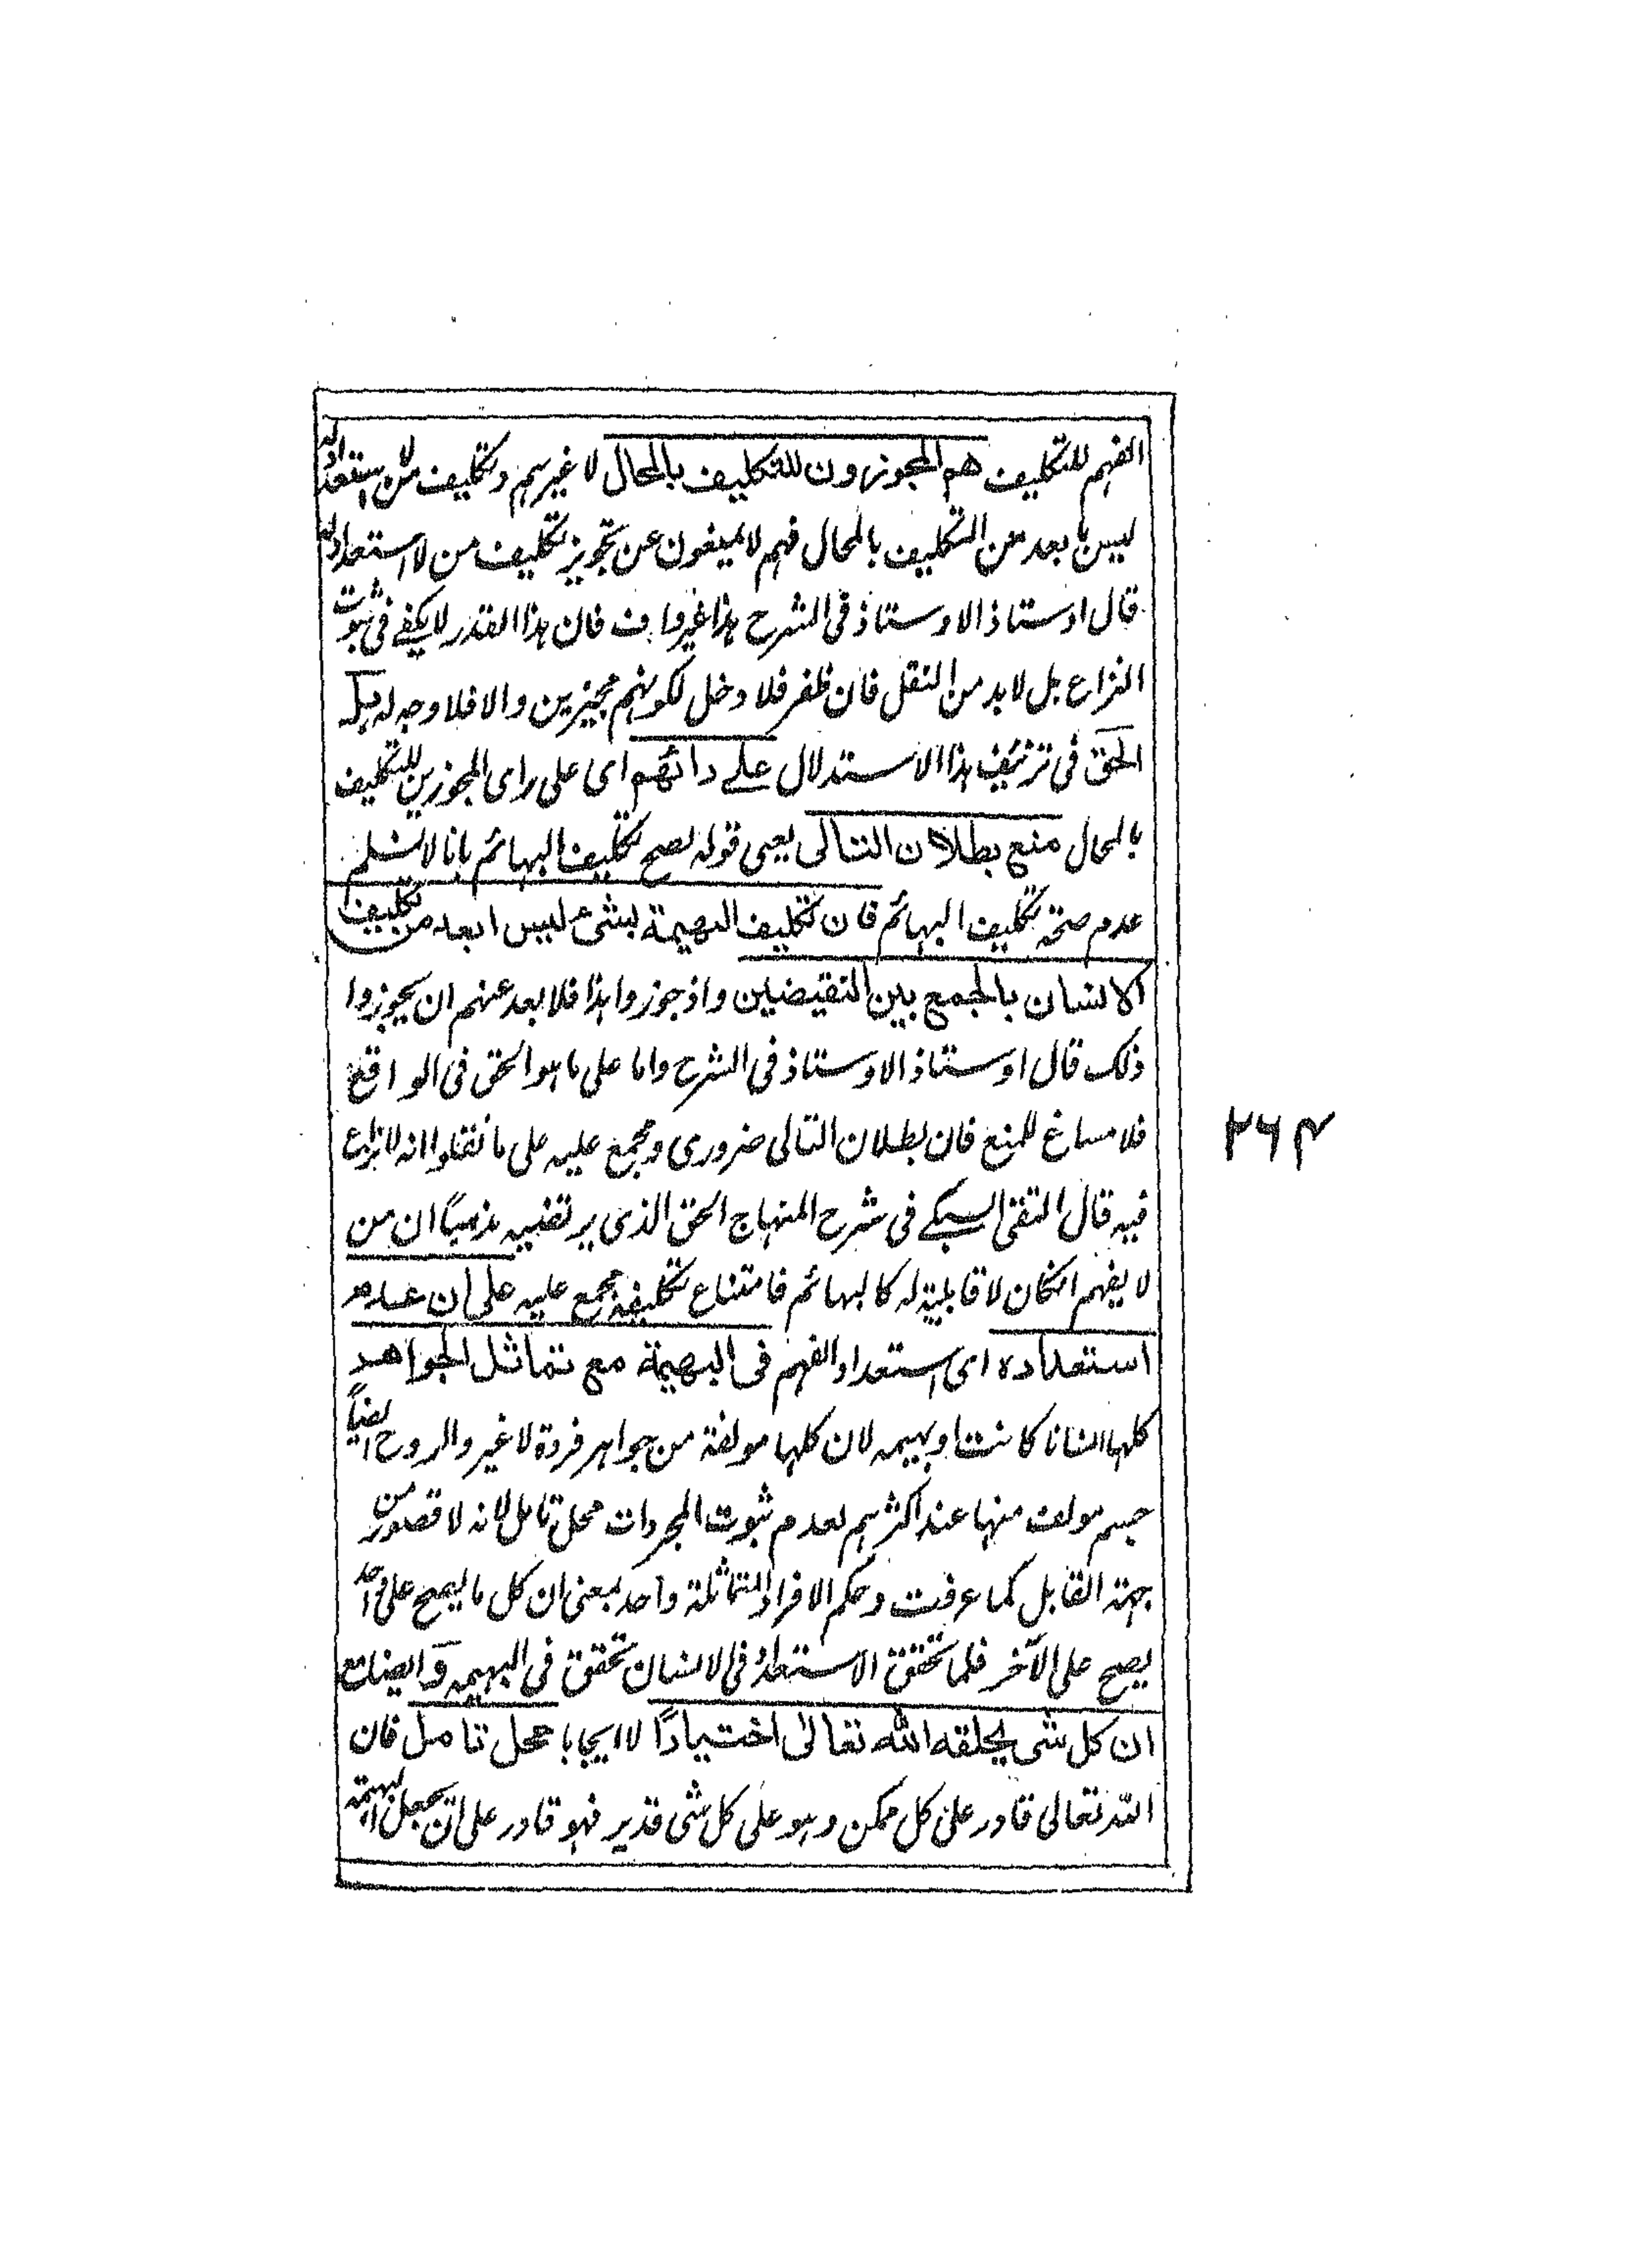 الفهم للتكليف هم المجوزون للتكليف بالمحال لا غيرهم وتكليف من لا استعداد له
ليس بابعد من التكليف بالمحال فهم لا يمنعون عن تجويز تكليف من لا استعداد له
قال اوستاذ الاوستاذ فى الشرح هذا غير واف فان هذا القدر لا يكفے فى ثبوت
النزاع بل لابد من النقل فان ظفر فلا دخل لكونهم مجيزين والا فلا وجه له بل
الحق فى تزئيف هذا الاستدلال علے رائهم اى على راى المجوزين للتكليف
بالمحال منع بطلان التالى يعنى قوله لصح تكليف البهائم بانا لا نسلم
عدم صحة تكليف البهائم فان تكليف البهيمة بشئ ليس ابعد من تكليف
الانسان بالجمع بين النقيضين واذ جوزوا هذا فلا بعد عنهم ان يجوزوا
ذلك قال اوستاذ الاوستاذ فى الشرح واما على ما هو الحق فى الواقع
فلا مساغ للمنع فان بطلان التالى ضرورى ومجمع عليه على ما نقلوا انه لا نزاع
فيه قال التقى السبكے فى شرح المنهاج الحق الذى يرتضيه مذهباً ان من
لا يفهم ان كان لا قابلية له كالبهائم فامتناع تكليفه مجمع عليه على ان عدم
استعداده اى استعداد الفهم فى البهيمة مع تماثل الجواهر
كلها انسانا كانت او بهيمه لان كلها مولفة من جواهر فردة لا غير والروح ايضاً
جسم مولف منها عند اكثرهم لعدم ثبوت المجردات محل تامل لانه لا قصور من
جهة القابل كما عرفت وحكم الافراد المتماثلة واحد بمعنى ان كل ما يصح على احد
يصح على الآخر فلما تحقق الاستعداد فى الانسان تحقق فى البهيمه و ايضا مع
ان كل شى يخلقه الله تعالى اختيارًا لا ايجابا محل تامل فان
الله تعالى قادر على كل ممكن وهو على كل شى قدير فهو قادر على ان يجعل البهيمة
٢٦٣